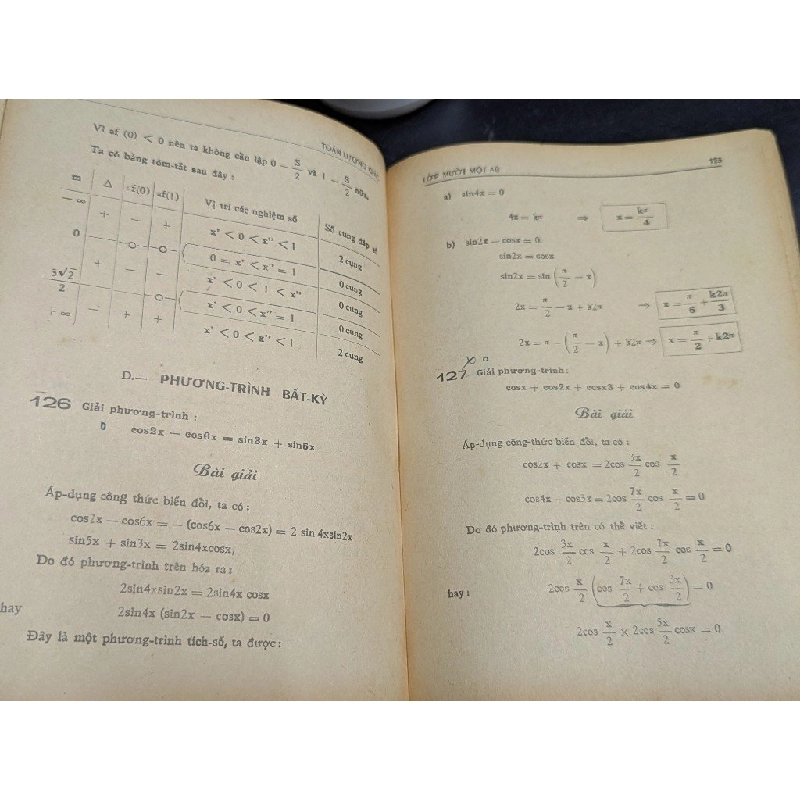 TOÁN LƯỢNG GIÁC
Vì af (0) < 0 nên ta không cần lập 0 — S/2 và 1 — S/2 nữa.
Ta có bảng tóm-tắt sau đây :
m Δ af(0) af(1) Vị trí các nghiệm số Số cung đáp số
— ∞ + — + x' < 0 < x'' < 1 2 cung
0 0 0 0 = x' < x'' = 1 0 cung
+ — — x' < 0 < 1 < x'' 0 cung
5√2/2 0 x' < 0 < x'' = 1 0 cung
+ ∞ — + + x' < 0 < x'' < 1 2 cung
D.— PHƯƠNG-TRÌNH BẤT-KỲ
126 Giải phương-trình :
cos2x — cos6x = sin3x + sin5x
Bài giải
Áp-dụng công thức biến đổi, ta có :
cos2x — cos6x = — (cos6x — cos2x) = 2 sin 4xsin2x
sin5x + sin3x = 2sin4xcosx,
Do đó phương-trình trên hóa ra :
2sin4xsin2x = 2sin4x cosx
hay 2sin4x (sin2x — cosx) = 0
Đây là một phương-trình tích-số, ta được :
LỚP MƯỜI MỘT AB 153
a) sin4x = 0
4x = kπ ⇒ x = kπ/4
b) sin2x — cosx = 0
sin2x = cosx
sin2x = sin (π/2 — x)
2x = π/2 — x + k2π ⇒ x = π/6 + k2π/3
2x = π — (π/2 — x) + k2π ⇒ x = π/2 + k2π
127 Giải phương-trình :
cosx + cos2x + cosx3 + cos4x = 0
Bài giải
Áp-dụng công-thức biến đổi, ta có :
cos2x + cosx = 2cos 3x/2 cos x/2
cos4x — cos3x = 2cos 7x/2 cos x/2 = 0
Do đó phương-trình trên có thể viết :
2cos 3x/2 cos x/2 + 2cos 7x/2 cos x/2 = 0
hay : 2cos x/2 (cos 7x/2 + cos 3x/2) = 0
2cos x/2 × 2cos 5x/2 cosx = 0